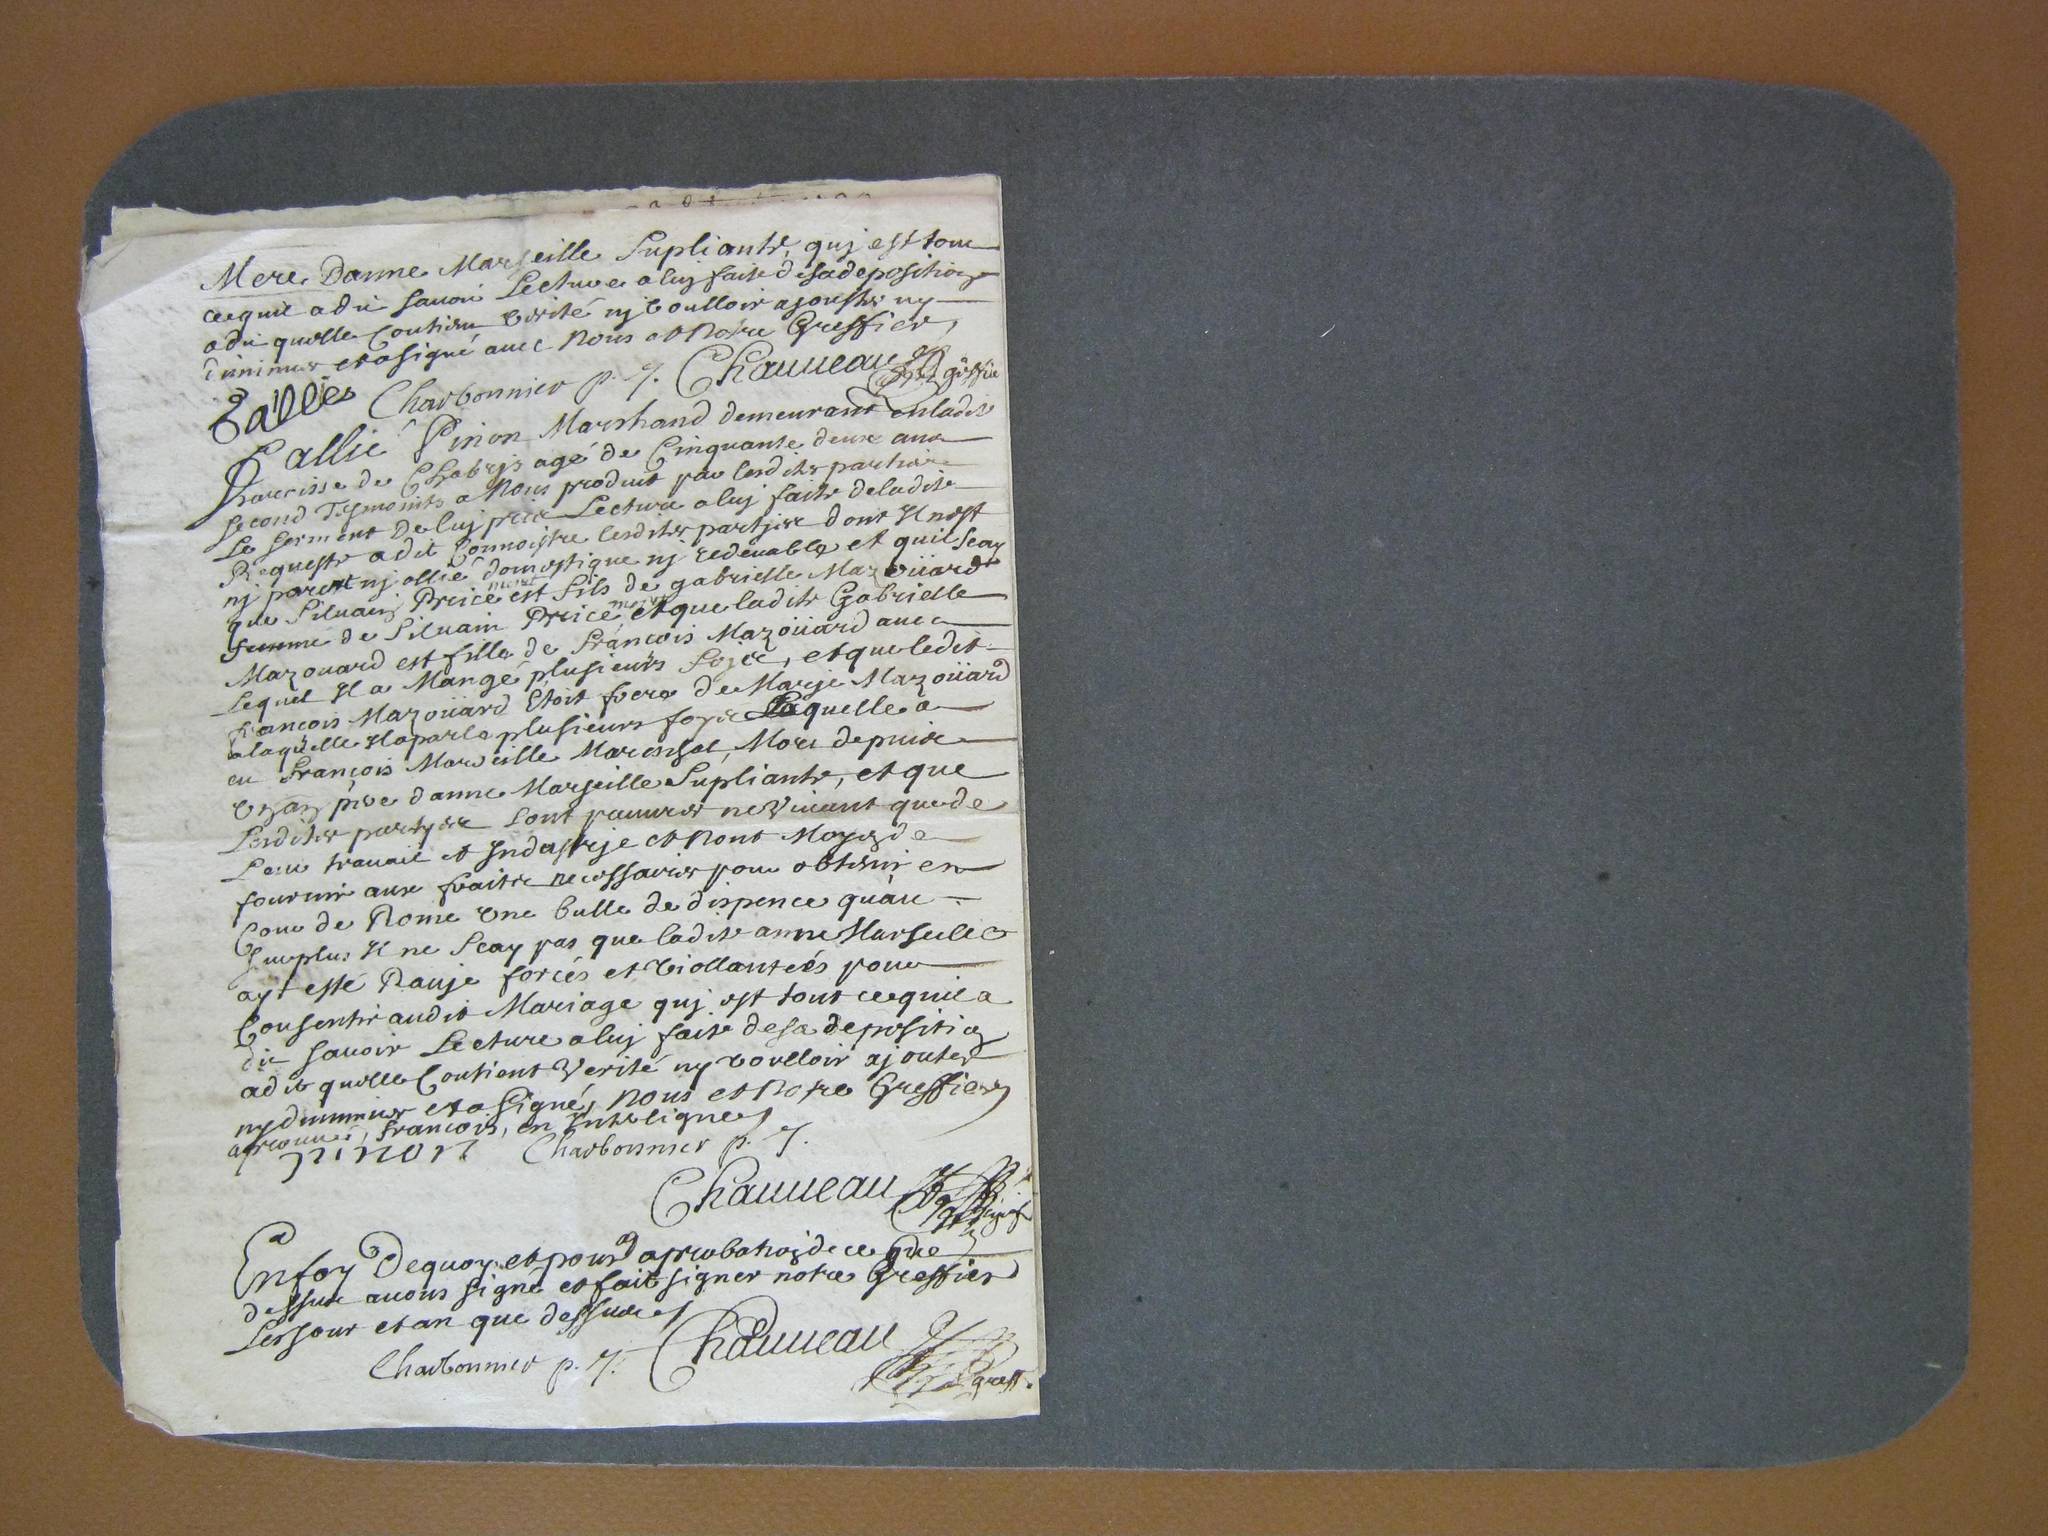 Mere Danne Marseille Supliante, quj est tout
cequil a dit savoir Lecture a luj faite de sa deposition
a dit quelle Contient verité nj voulloir ajouster ny
diminuer et a signé avec Nous et Notre Greffier,
Charbonnier p. j. Chauueau greffier
Pinon Marchand demeurant en ladite
Parroisse de Chabrjs agé de Cinquante deux ans
second Tesmoints a Nous produit par lesdites parties
Le serment De luj pris Lecture a luj faite de ladite
Requeste a dit Connoistre lesdites partjes dont Il n'est
nj parent nj allié domestique nj redevable et quil scay
que Siluain Preicé est fils de gabrielle Mazoüard
femme de Siluain Preicé et que ladite Gabrielle
Mazouard est fille de François Mazoüard auec
Lequel Il a Mangé plusieurs fojee, et que ledit
francois Mazoüard Etoit frere de Marje Mazoüard
a laquelle Il a parlé plusieurs foyee Laquelle a
eu François Marseille Mort depuis
pere danne Marseille Supliante, et que
Lesdites partyes sont pauures ne Viuant que de
Leur trauail et Industrje et Nont Moyen de
fournir aux frais necessaires pour obtenir en
Cour de Rome vne bulle de dispence quau
Surplus Il ne scay pas que ladite anne Marseille
ayt esté Rauje forcés et viollantées pour
Consentir audit Mariage quj est tout cequil a
dit sauoir Lecture a luj faite de sa deposition
a dit quelle Contient Verité ny voulloir ajouter
ny diminuer et a Signé, Nous et Notre Greffier
aprouué, francois, en Interligne
pinon Charbonnier p. j.
Chauueau
En foy Dequoy et pour aprobation de ce que
dessus auons signé et fait signer notre Greffier
Les jour et an que dessus
Charbonnier p. j. Chauueau greff.